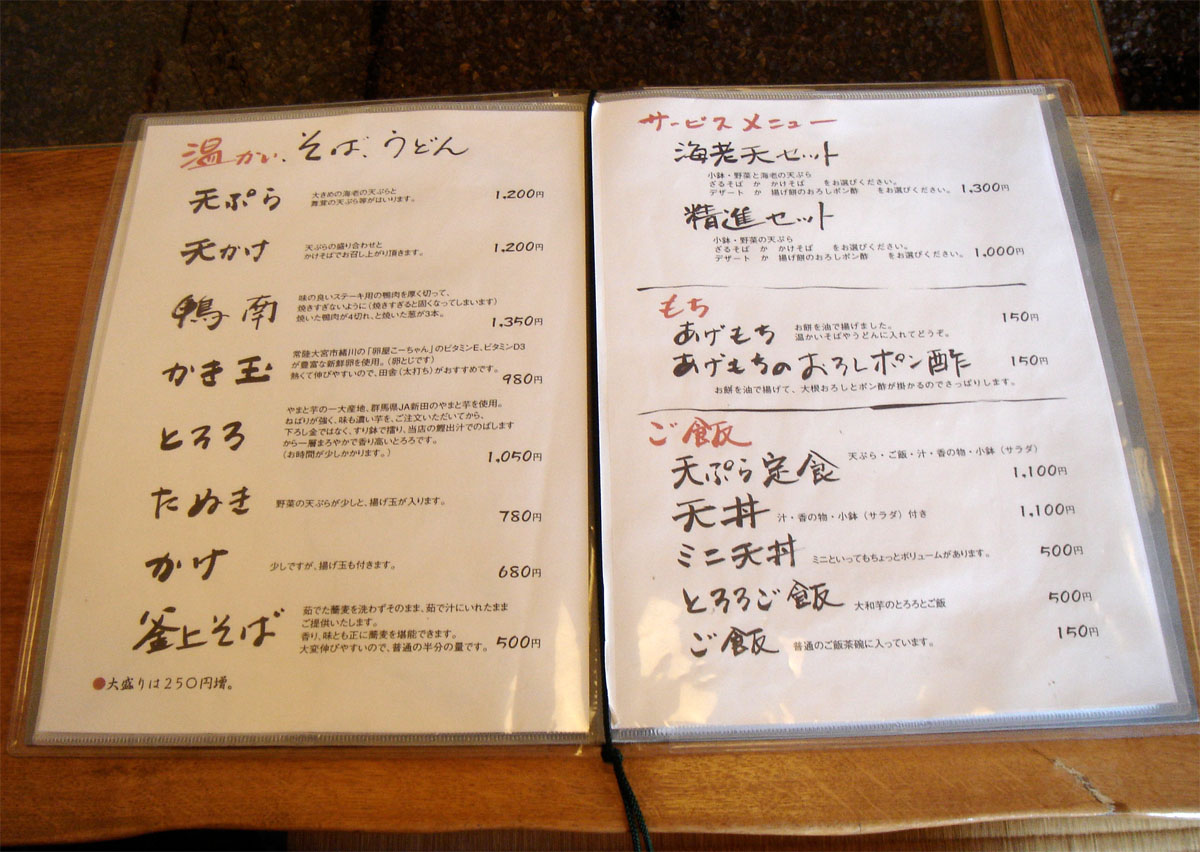 温かい、そば、うどん
天ぷら
大きめの海老の天ぷらと
舞茸の天ぷら等がはいります。
1,200円
天かけ
天ぷらの盛り合わせと
かけそばでお召し上がり頂きます。
1,200円
鴨南
味の良いステーキ用の鴨肉を厚く切って、
焼きすぎないように(焼きすぎると固くなってしまいます)
焼いた鴨肉が4切れ、と焼いた葱が3本。
1,350円
かき玉
常陸大宮市緒川の「卵屋こーちゃん」のビタミンE、ビタミンD3
が豊富な新鮮卵を使用。(卵とじです)
熱くて伸びやすいので、田舎(太打ち)がおすすめです。
980円
とろろ
やまと芋の一大産地、群馬県JA新田のやまと芋を使用。
ねばりが強く、味も濃い芋を、ご注文いただいてから、
下ろし金ではなく、すり鉢で擂り、当店の鰹出汁でのばします
から一層まろやかで香り高いとろろです。
(お時間が少しかかります。)
1,050円
たぬき
野菜の天ぷらが少しと、揚げ玉が入ります。
780円
かけ
少しですが、揚げ玉も付きます。
680円
釜上そば
茹でた蕎麦を洗わずそのまま、茹で汁にいれたまま
ご提供いたします。
香り、味とも正に蕎麦を堪能できます。
大変伸びやすいので、普通の半分の量です。
500円
●大盛りは250円増。
サービスメニュー
海老天セット
小鉢・野菜と海老の天ぷら
ざるそば か かけそば をお選びください。
デザート か 揚げ餅のおろしポン酢 をお選びください。
1,300円
精進セット
小鉢・野菜の天ぷら
ざるそば か かけそば をお選びください。
デザート か 揚げ餅のおろしポン酢 をお選びください。
1,000円
もち
あげもち
お餅を油で揚げました。
温かいそばやうどんに入れてどうぞ。
150円
あげもちのおろしポン酢
150円
お餅を油で揚げて、大根おろしとポン酢が掛かるのでさっぱりします。
ご飯
天ぷら定食
天ぷら・ご飯・汁・香の物・小鉢(サラダ)
1,100円
天丼
汁・香の物・小鉢(サラダ)付き
1,100円
ミニ天丼
ミニといってもちょっとボリュームがあります。
500円
とろろご飯
大和芋のとろろとご飯
500円
ご飯
普通のご飯茶碗に入っています。
150円